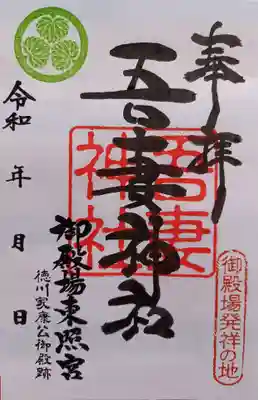 奉拝
吾妻神社
吾妻
神社
御殿場発祥の地
御殿場東照宮
徳川家康公御殿跡
令和 年 月 日